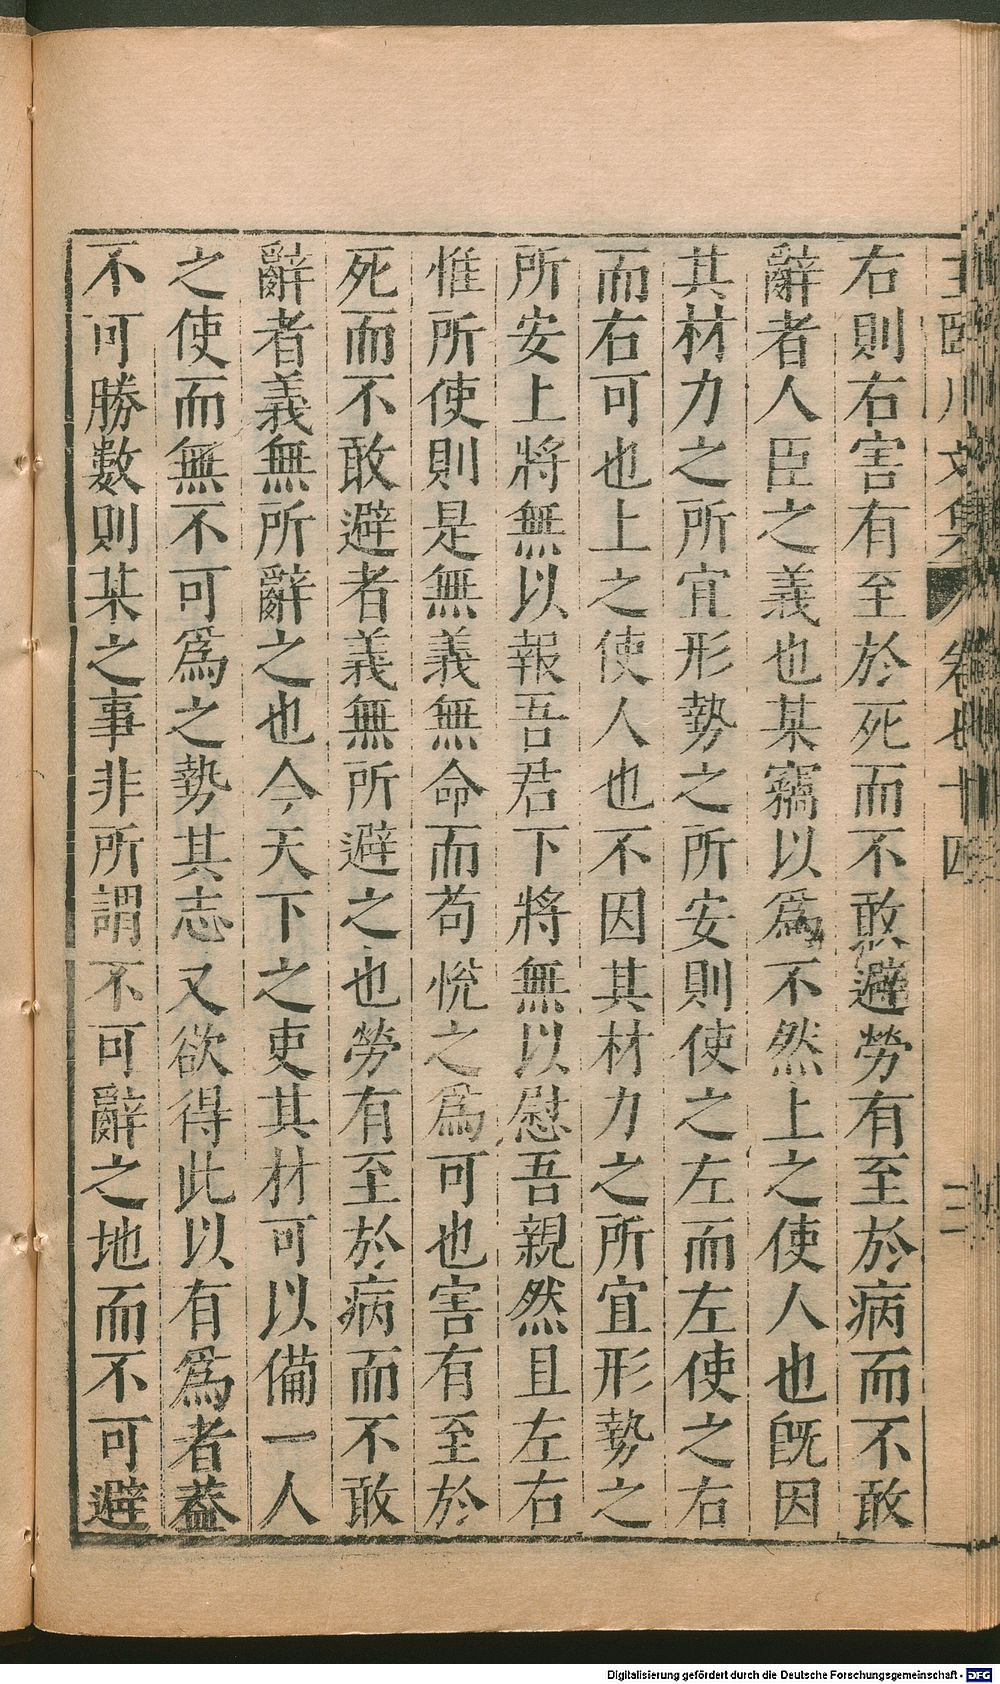 王臨川文集 卷七十四 三
右則右害有至於死而不敢避勞有至於病而不敢
辭者人臣之義也某竊以爲不然上之使人也旣因
其材力之所宜形勢之所安則使之左而左使之右
而右可也上之使人也不因其材力之所宜形勢之
所安上將無以報吾君下將無以慰吾親然且左右
惟所使則是無義無命而苟悅之爲可也害有至於
死而不敢避者義無所避之也勞有至於病而不敢
辭者義無所辭之也今天下之吏其材可以備一人
之使而無不可爲之勢其志又欲得此以有爲者葢
不可勝數則某之事非所謂不可辭之地而不可避
Digitalisierung gefördert durch die Deutsche Forschungsgemeinschaft - DFG